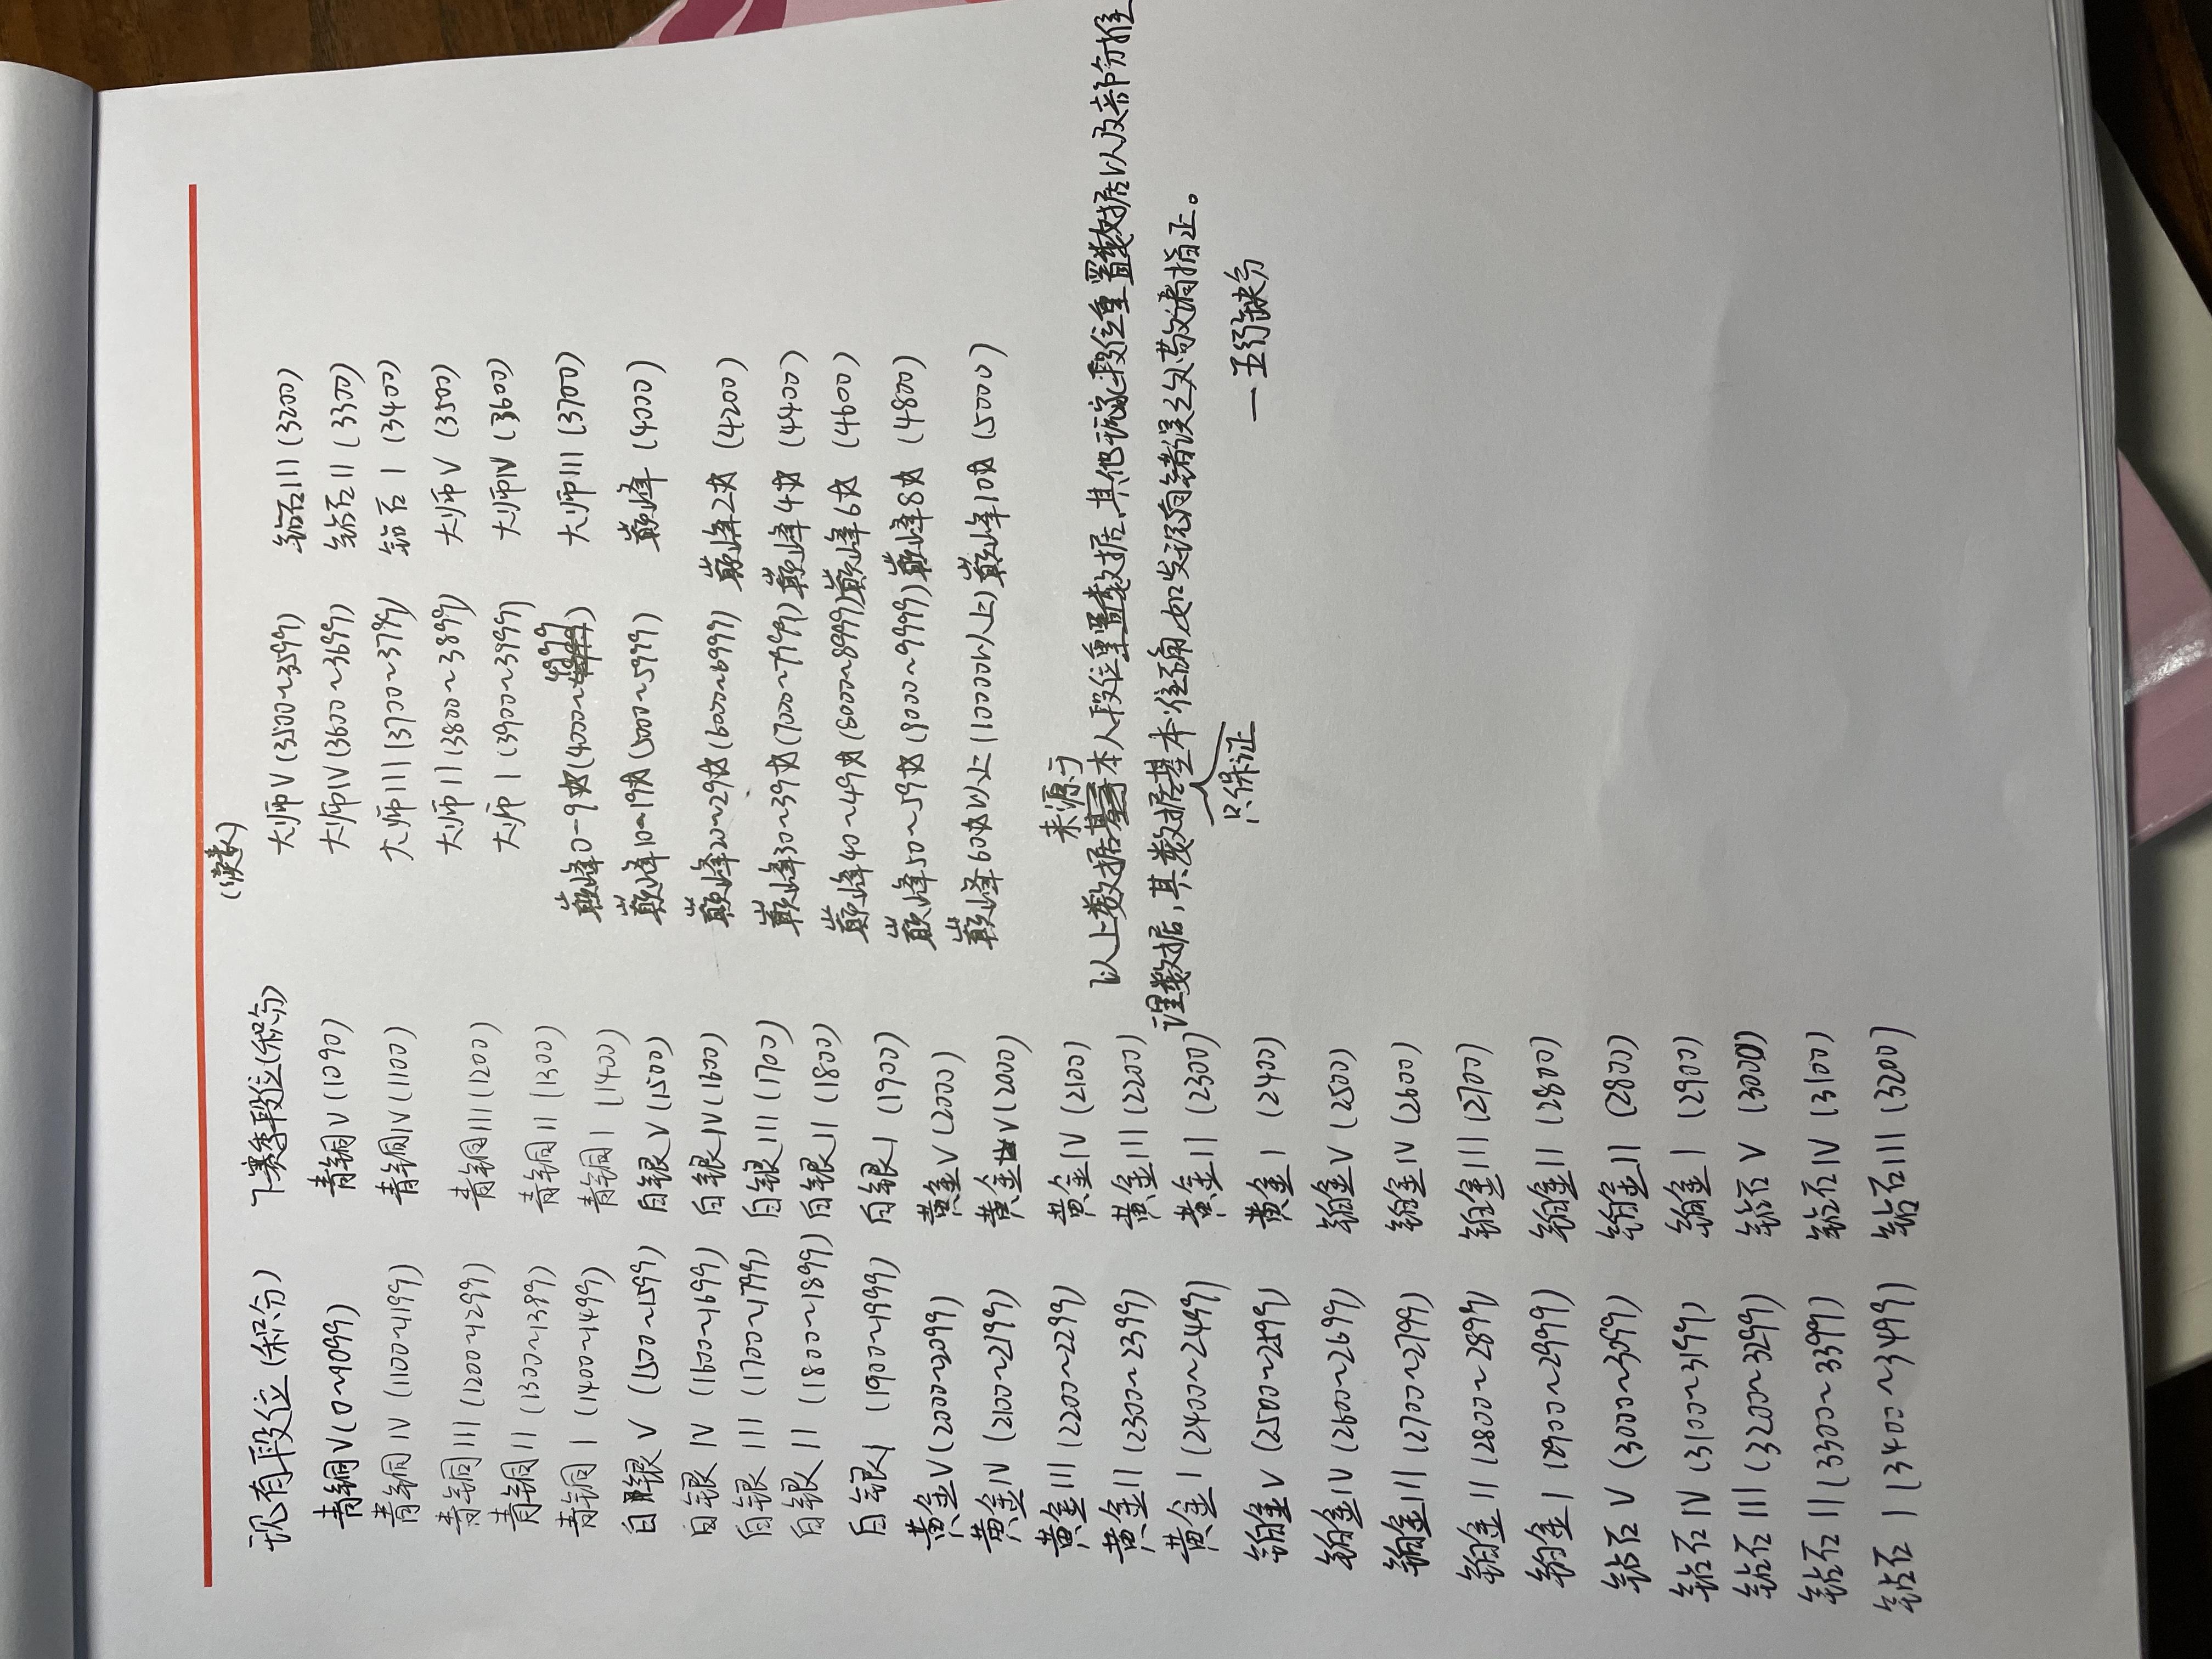 现有段位(积分) 下赛季段位(积分)
青铜V(0~1099) 青铜V(1090)
青铜IV(1100~1199) 青铜IV(1100)
青铜III(1200~1299) 青铜III(1200)
青铜II(1300~1389) 青铜II(1300)
青铜I(1400~1499) 青铜I(1400)
白银V(1500~1599) 白银V(1500)
白银IV(1600~1699) 白银IV(1600)
白银III(1700~1799) 白银III(1700)
白银II(1800~1899) 白银II(1800)
白银I(1900~1999) 白银I(1900)
黄金V(2000~2099) 黄金V(2000)
黄金IV(2100~2199) 黄金V(2000)
黄金III(2200~2299) 黄金IV(2100)
黄金II(2300~2399) 黄金III(2200)
黄金I(2400~2499) 黄金II(2300)
铂金V(2500~2599) 黄金I(2400)
铂金IV(2600~2699) 铂金V(2500)
铂金III(2700~2799) 铂金IV(2600)
铂金II(2800~2899) 铂金III(2700)
铂金I(2900~2999) 铂金II(2800)
钻石V(3000~3099) 铂金II(2800)
钻石IV(3100~3199) 铂金I(2900)
钻石III(3200~3299) 钻石V(3000)
钻石II(3300~3399) 钻石IV(3100)
钻石I(3400~3499) 钻石III(3200)
(续表)
大师V(3500~3599) 钻石III(3200)
大师IV(3600~3699) 钻石II(3300)
大师III(3700~3799) 钻石I(3400)
大师II(3800~3899) 大师V(3500)
大师I(3900~3999) 大师IV(3600)
巅峰0-9(4000~4999) 大师III(3700)
巅峰10~19(5000~5999) 巅峰(4000)
巅峰20~29(6000~6999) 巅峰2(4200)
巅峰30~39(7000~7999) 巅峰4(4400)
巅峰40~49(8000~8999) 巅峰6(4600)
巅峰50~59(9000~9999) 巅峰8(4800)
巅峰60以上(10000以上) 巅峰10(5000)
以上数据来源于本人段位重置数据、其他玩家段位重置数据以及部分推
理数据,其数据只保证基本准确,如发现有错误之处敬请指正。
—五行缺